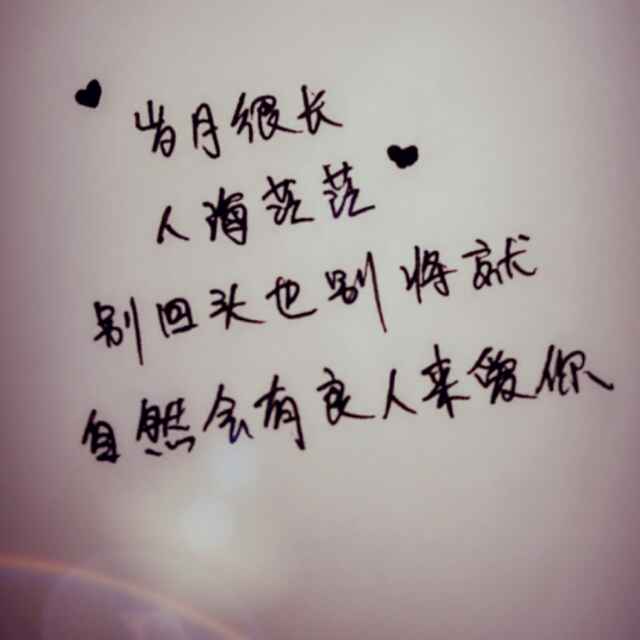 岁月很长
人海茫茫
别回头也别将就
自然会有良人来爱你